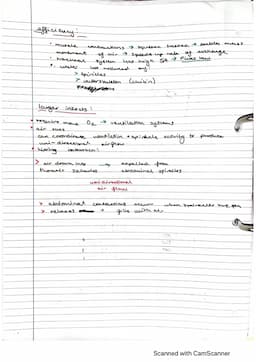 efficiency:
• muscle contractions → increase → enables mass
movement of air → speeds up rate of exchange
• tracheal system has high SA →
• water loss reduced by:
> spiracles
> exoskeleton
larger insects:
• require more O₂ → ventilation systems
• air sacs
can coordinate ventilation + spiracle activity to produce
uni-directional airflow
•
> air drawn into → expelled from
thoracic spiracles abdominal spiracles
unidirectional
air flow
> abdominal contractions occur when spiracles
> relaxes → fills with air
Scanned with CamScanner